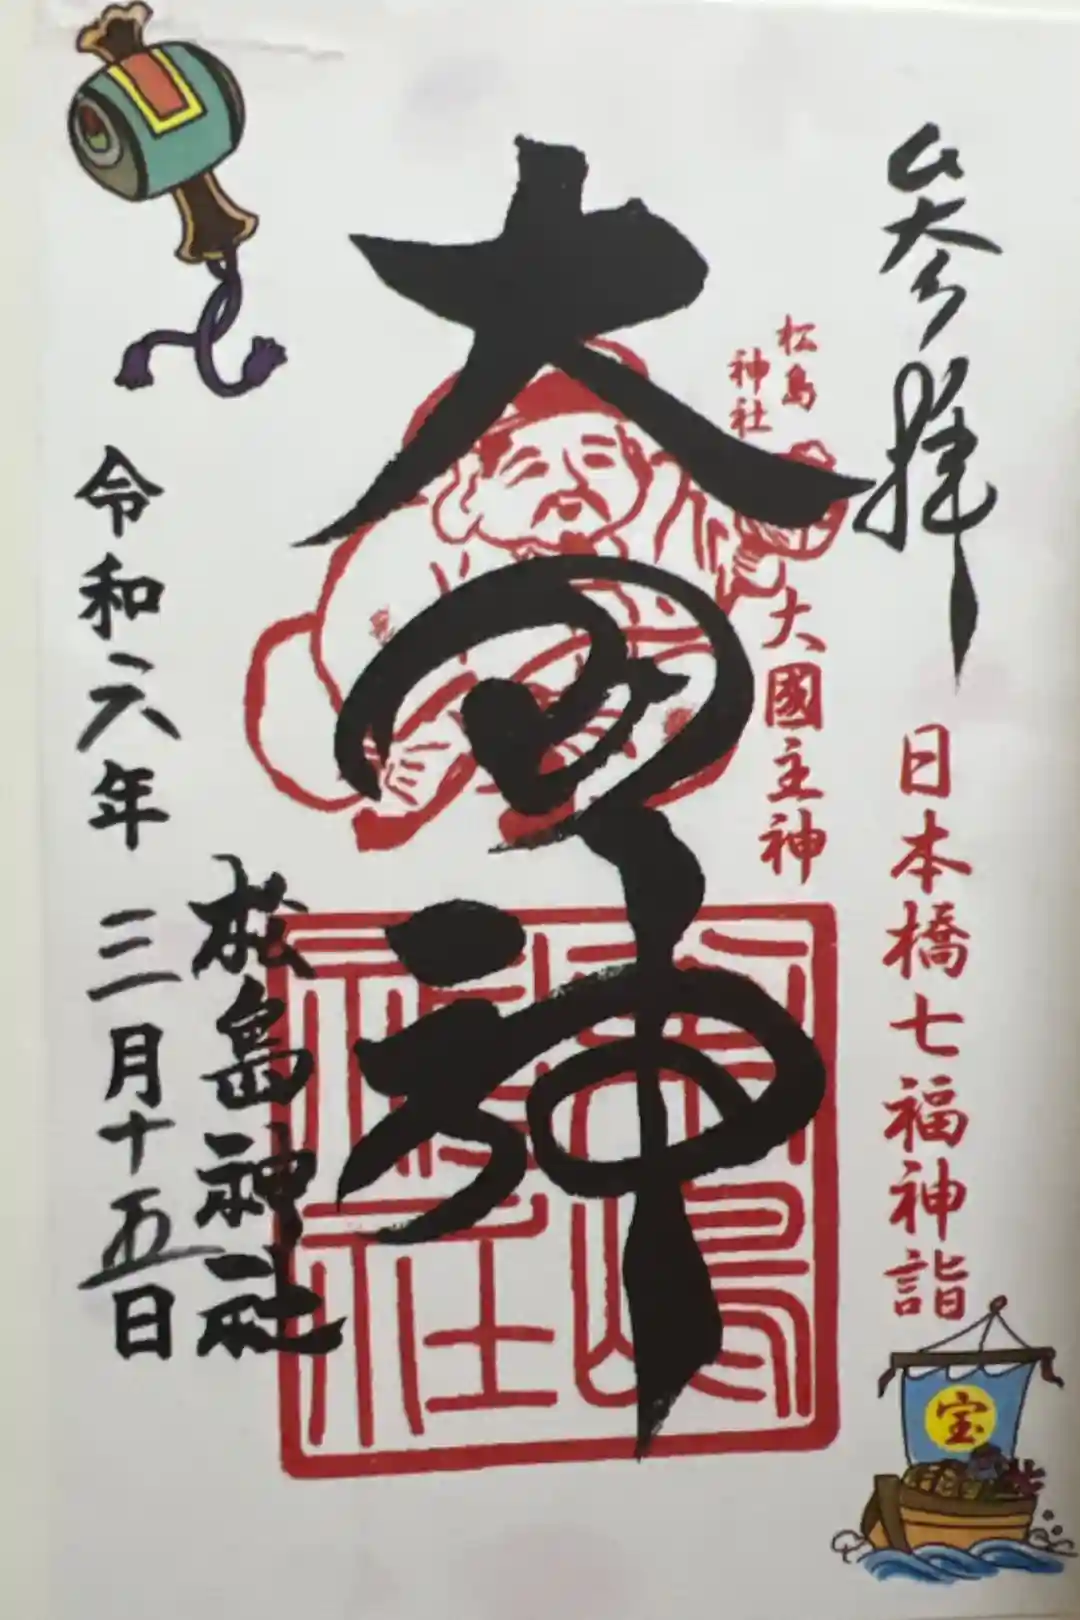 参拝
日本橋七福神詣
宝
松島
神社
大國主神
大黒神
松島神社
令和六年 三月十五日